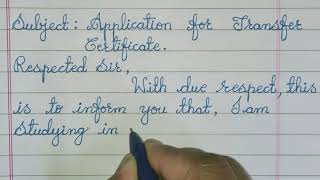 Subject: Application for Transfer
Certificate.
Respected Sir,
With due respect, this
is to inform you that, I am
studying in